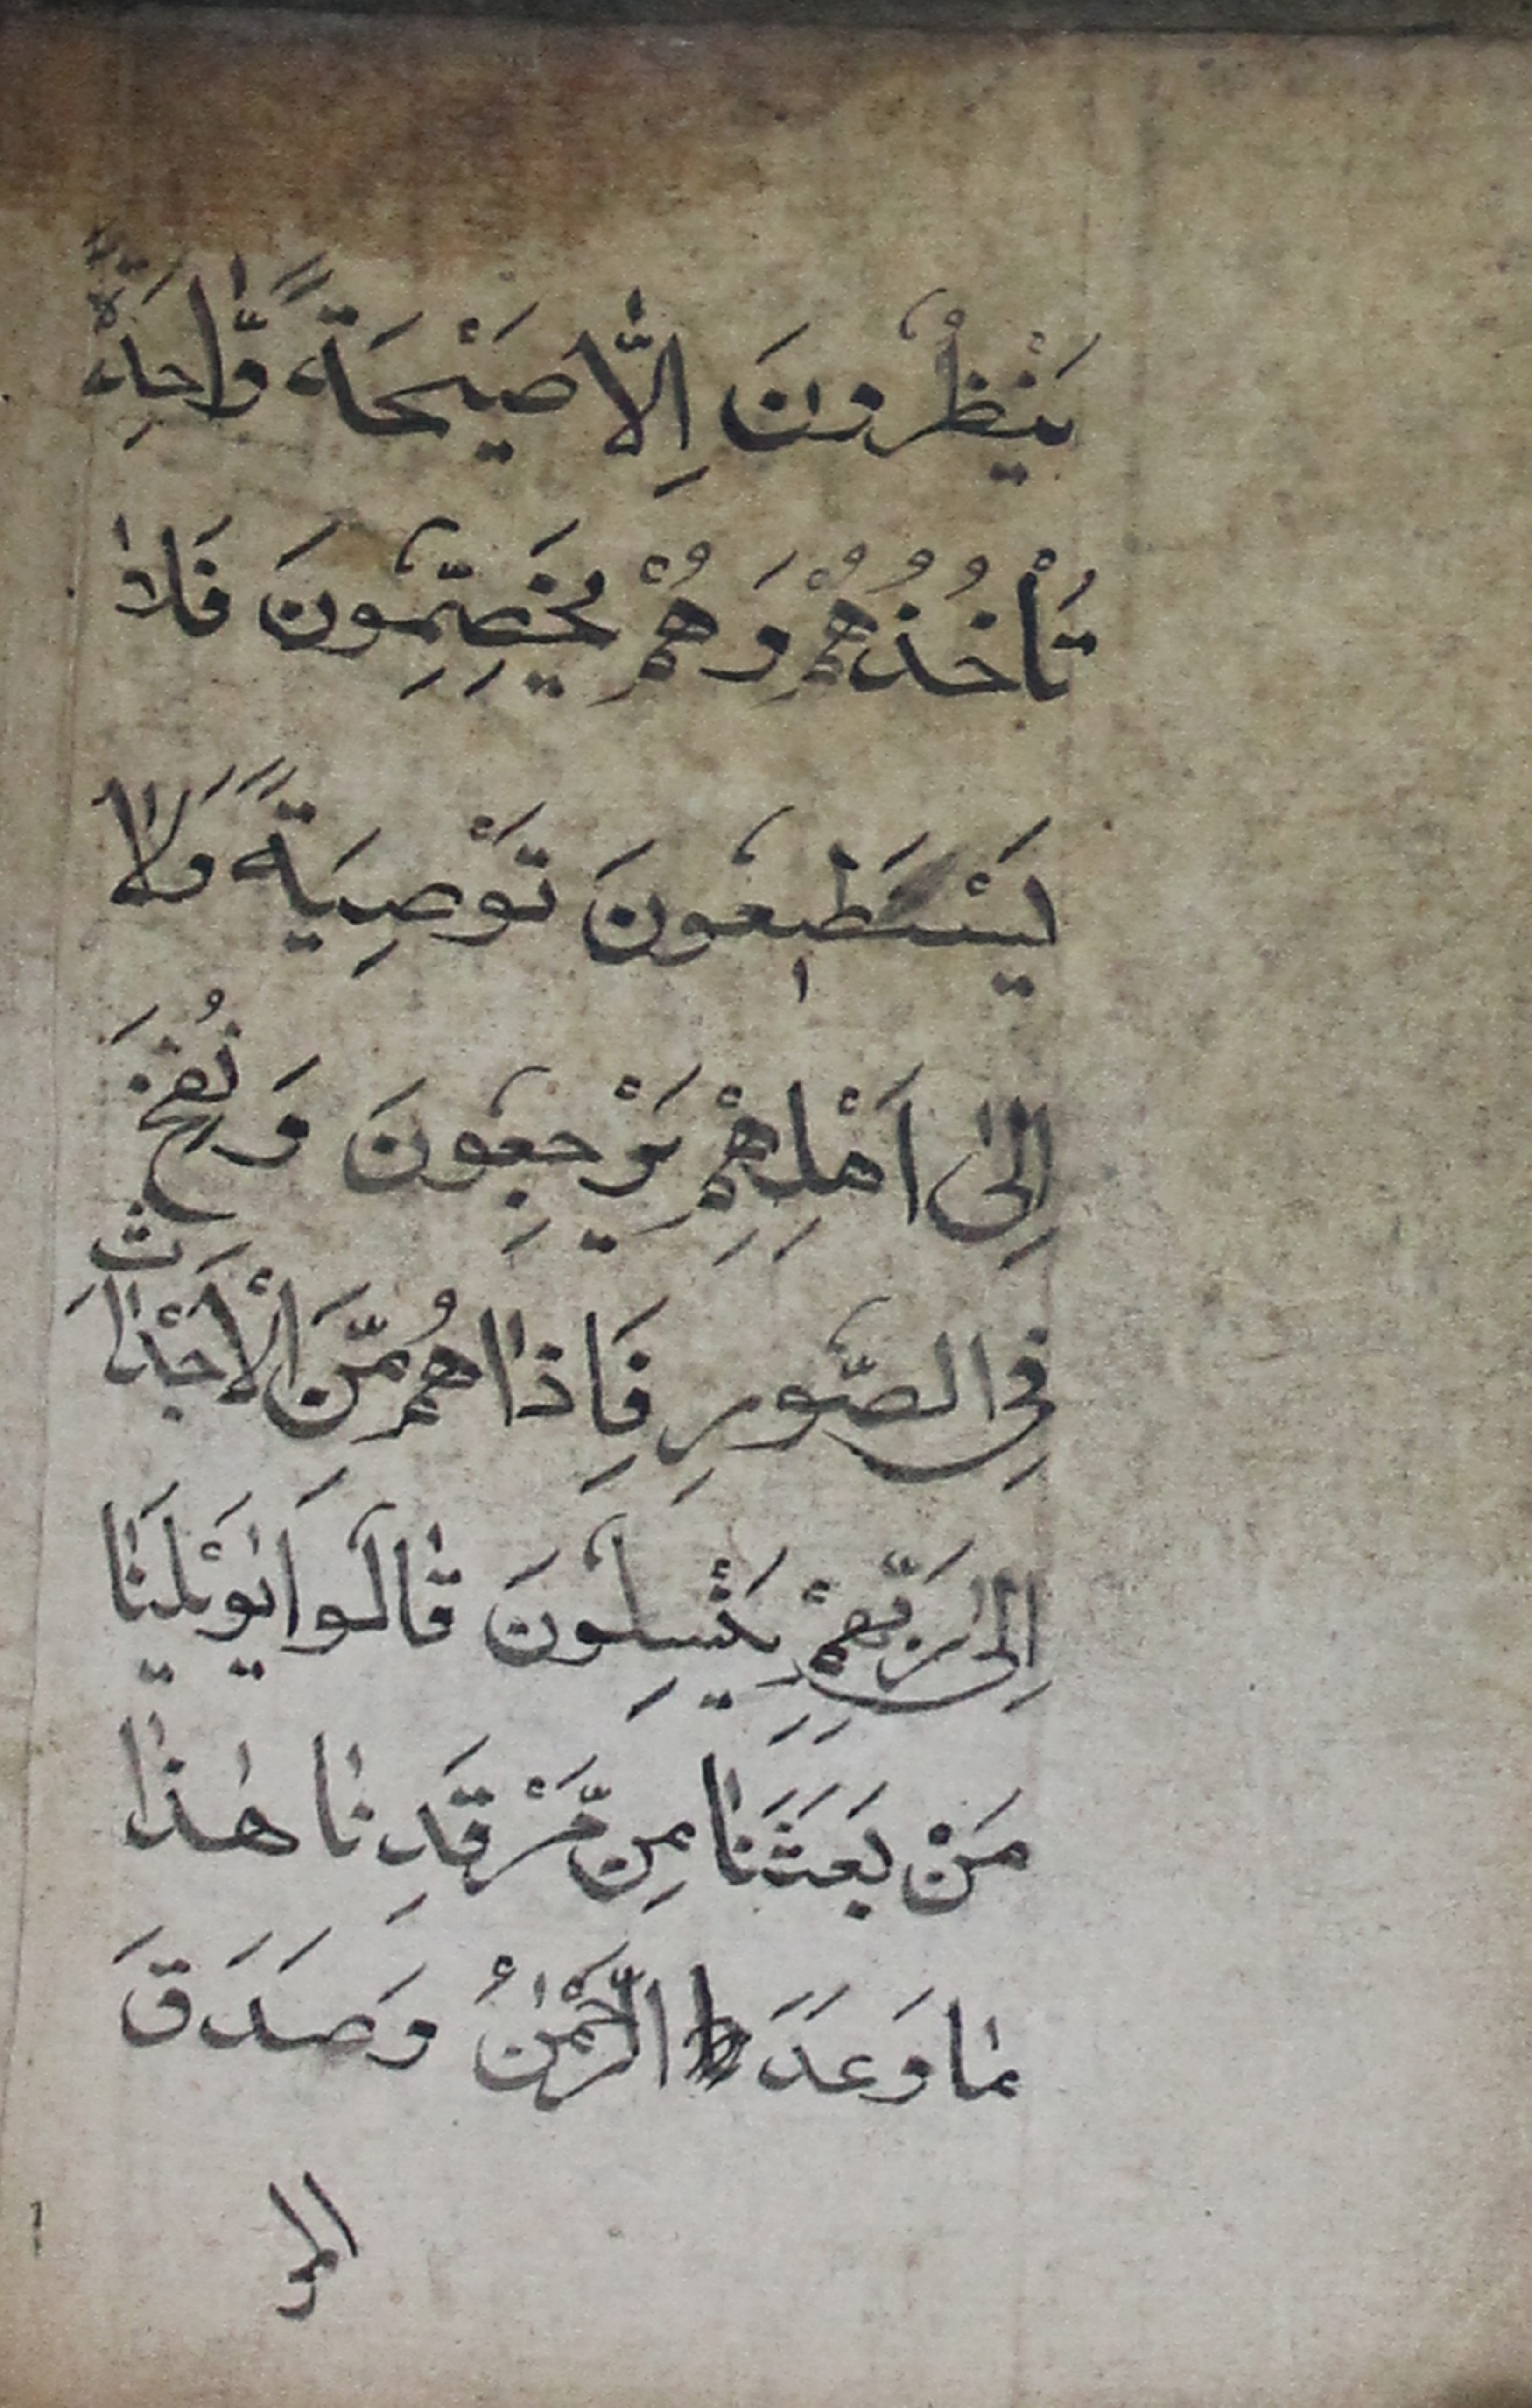 يَنْظُرُونَ اِلّٰا صَيْحَةً وّٰاحِدَةً
تَأْخُذُهُمْ وَهُمْ يَخِصِّمُونَ فَلاٰ
يَسْتَطٖيعُونَ تَوْصِيَةً وَلاٰ
اِلىٰ اَهْلِهِمْ يَرْجِعُونَ وَ نُفِخَ
فِى الصُّورِ فَاِذٰا هُمْ مِّنَ الْأَجْدٰاثِ
اِلىٰ رَبِّهِمْ يَنْسِلُونَ قٰالُوا يٰوَيْلَنٰا
مَنْ بَعَثَنٰا مِنْ مَّرْقَدِنٰا هٰذٰا
مٰا وَعَدَ الرَّحْمٰنُ وَصَدَقَ
المر